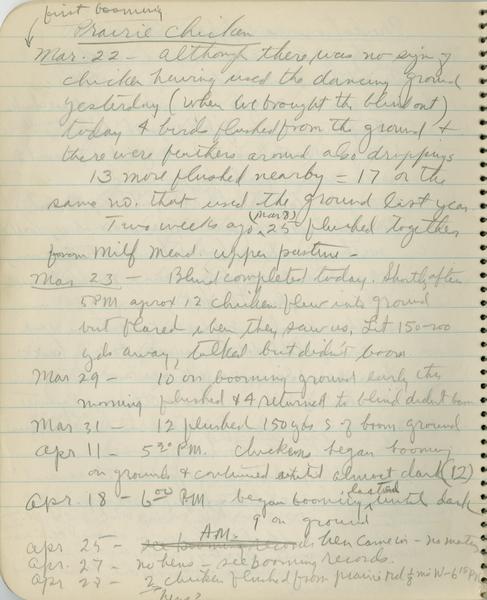 first booming
Prairie Chicken
Mar. 22 - Although there was no sign of
chicken having used the dancing ground
yesterday (when we brought the blind out)
today 4 birds flushed from the ground &
there were feathers around also droppings
13 more flushed nearby = 17 or the
same no. that used the ground last year
Two weeks ago (Mar 8) 25 flushed together
from Milf Mead. upper pasture -
Mar 23 - Blind completed today. Shortly after
5 PM aprox 12 chicken flew into ground
but flared when they saw us, Lit 150-200
yds away, talked but didn't boom
Mar 29 - 10 on booming ground early this
morning flushed & 4 returned to blind didn't boom
Mar 31 - 12 flushed 150 yds S of boom ground
Apr 11 - 5 30 P.M. chickens began booming
on grounds & continued until almost dark (12)
Apr. 18 - 6 00 P.M. began booming, lasted until dark
9 on ground
Apr 25 - see booming records A.M. hen came in - no mating
Apr. 27 - no hens - see booming records.
Apr 28 - 2 chicken flushed from prairie rd ½ mi W - 6 15 PM
hens?